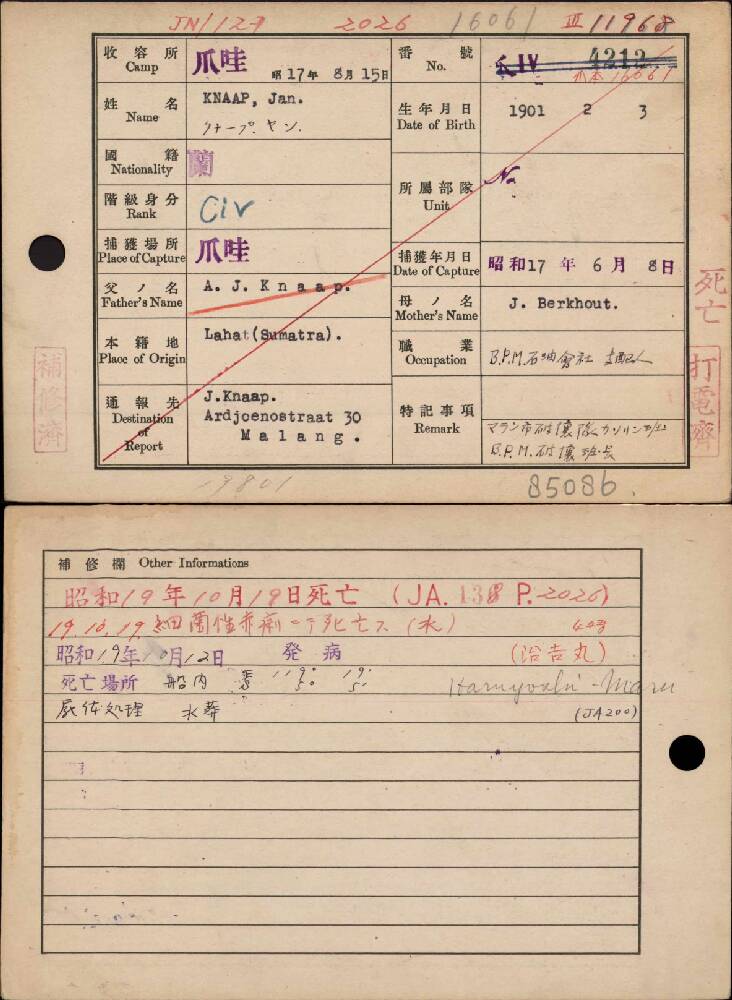 JN/127 2026 16061 III 11968
收容所 Camp 爪哇 昭17年 8月15日
番號 No. 爪IV 4212 爪本 16061
姓名 Name KNAAP, Jan.
クナープ ヤン.
生年月日 Date of Birth 1901 2 3
國籍 Nationality 蘭
階級身分 Rank Civ
所屬部隊 Unit Na
捕獲場所 Place of Capture 爪哇
捕獲年月日 Date of Capture 昭和17年 6月 8日
父ノ名 Father's Name A. J. Knaap.
母ノ名 Mother's Name J. Berkhout.
本籍地 Place of Origin Lahat(Sumatra).
職業 Occupation B.P.M.石油會社 支配人
通報先 Destination of Report
J.Knaap.
Ardjoenostraat 30
Malang.
特記事項 Remark
マラン市破壞隊ガソリン班
B.P.M.破壞班長
死亡
打電濟
補修濟
19801
85086.
補修欄 Other Informations
昭和19年10月19日死亡 (JA. 138 P. 2026)
19.10.19.細菌性赤痢ニテ死亡ス (水)
昭和19年10月12日 発病 (治吉丸)
死亡場所 船内 Haruyoshi-Maru
屍体処理 水葬 (JA200)